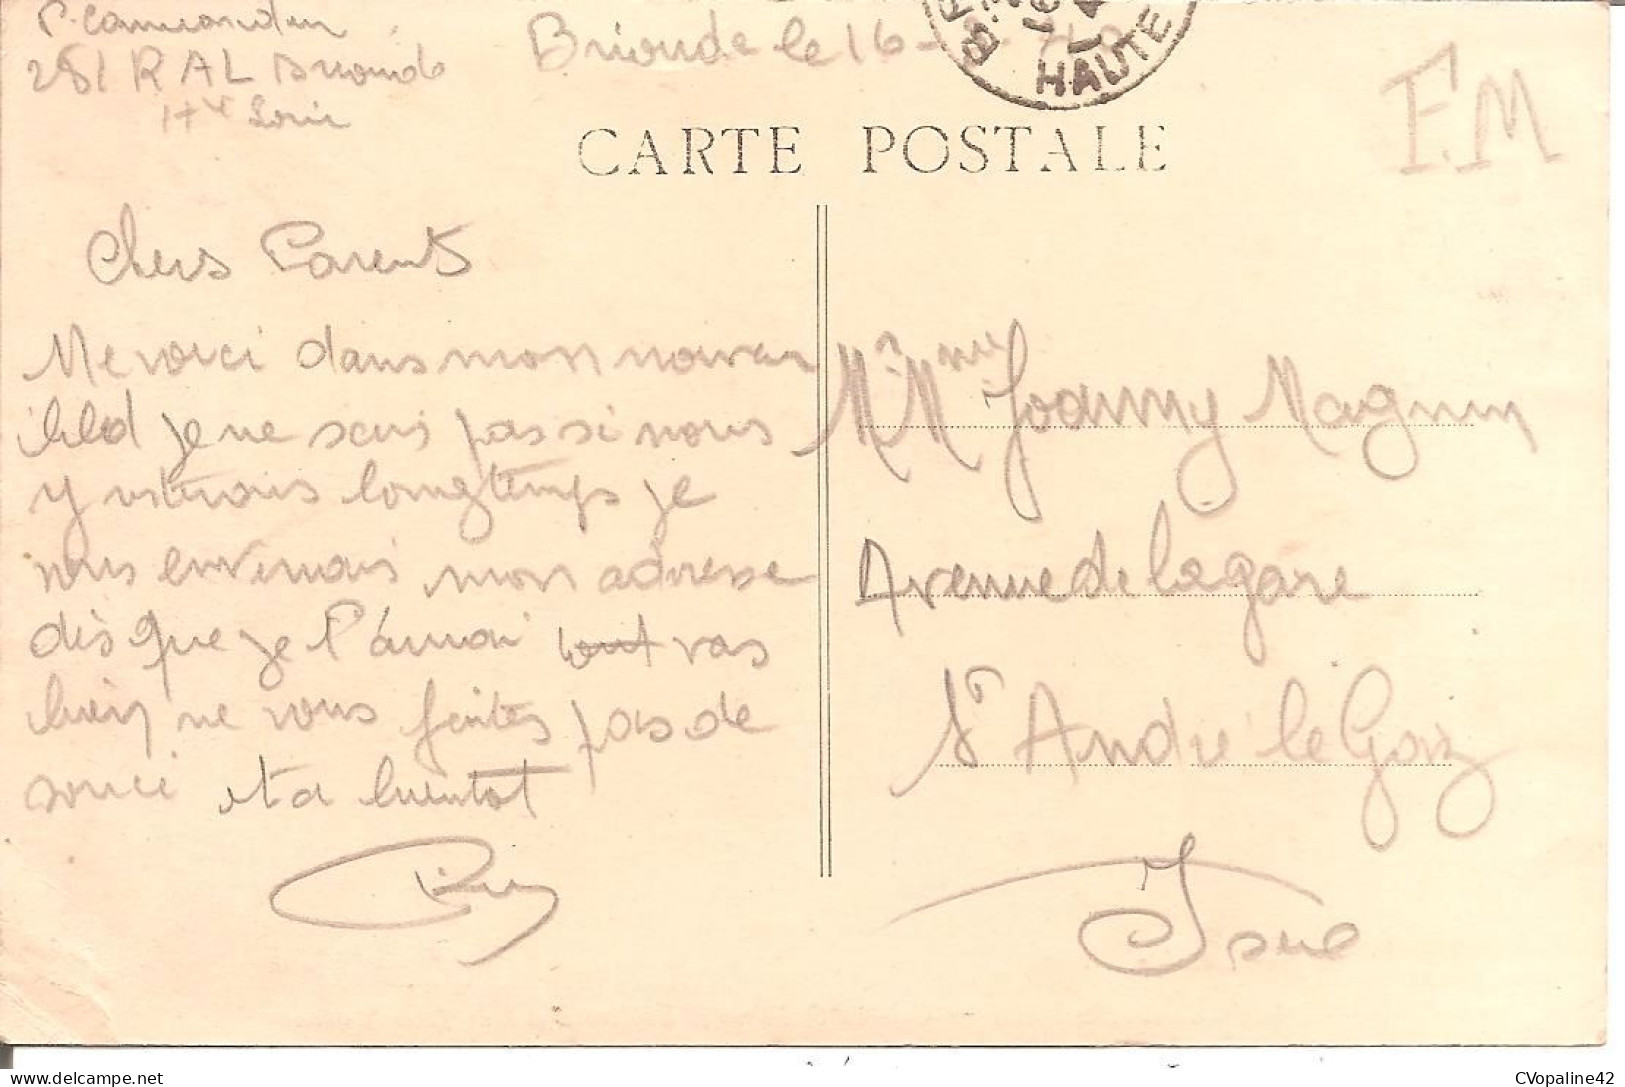 281 RAL Brioude
Hte Loire
Brioude le 16
HAUTE
F.M
CARTE POSTALE
Chers Parents
Me voici dans mon nouveau
je ne sais pas si nous
y resterons longtemps je
vous enverrais mon adresse
dès que je l'aurai tout vas
bien ne vous faites pas de
souci et a bientot
Mr Mme Joanny Magnin
Avenue de la gare
St André le Gaz
Isère
CVopaline42